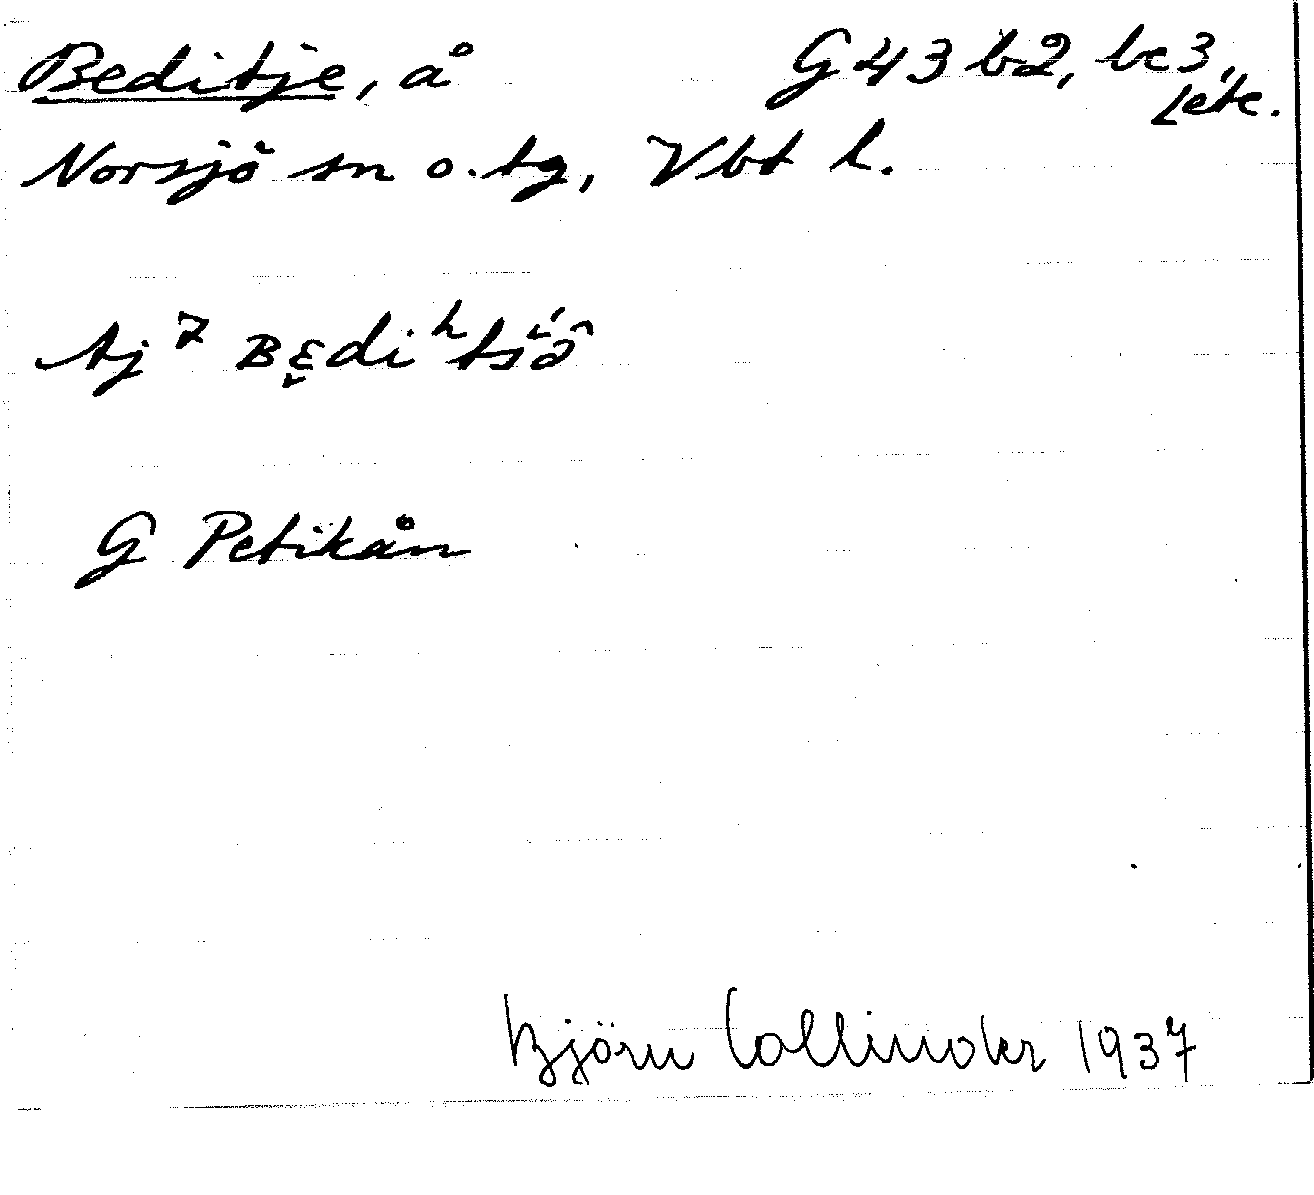 Beditje, å G43 b2, bc3, etc.
Norsjö sn o. tg, Vbt l.
G Petikån
Björn Collinder 1937